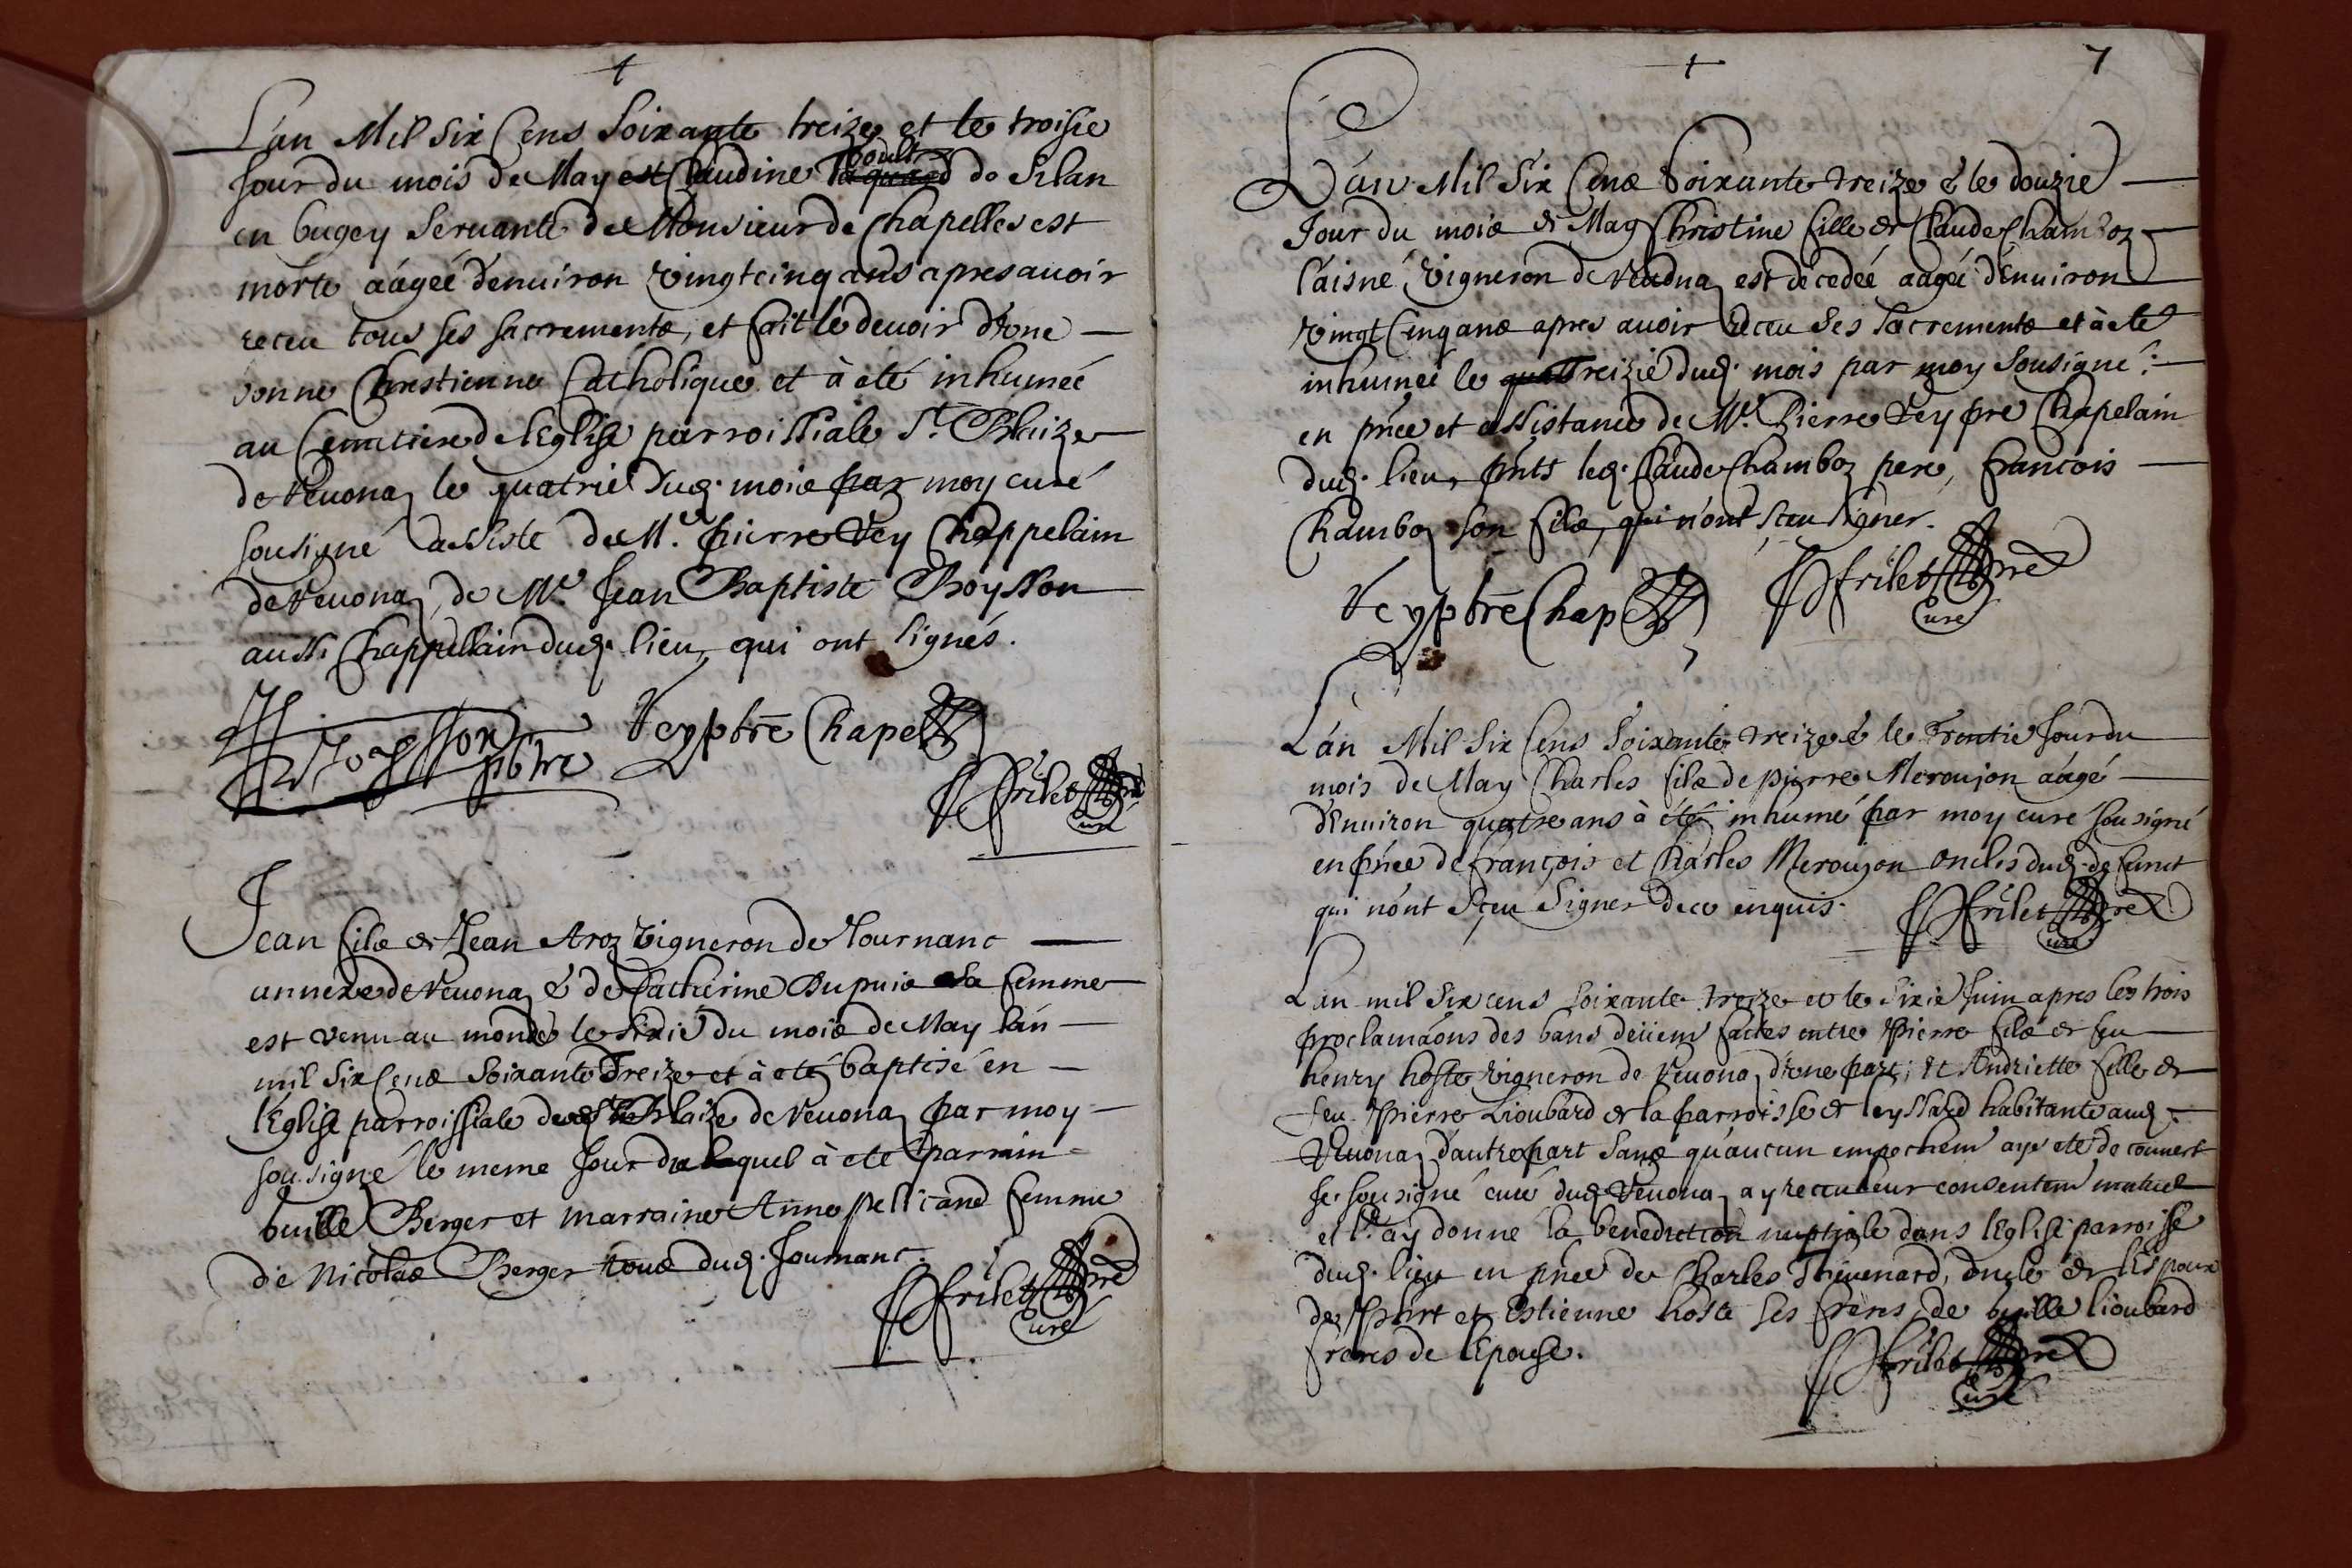 L'an Mil Six Cens Soixante treize et le troisie
Jour du mois de May est Claudine de Silan
en bugey Seruante de Monsieur de Chapelles est
morte aágeé d'enuiron vingt cinq ans apres auoir
receu tous ses sacrements, et fait le deuoir d'vne
bonne Chrestienne Catholique et à eté inhumeé
au Cemitiere de l'Eglise parroissiale St. Blaize
de Veuonaz le quatrie dud. mois par moy curé
sousigné assisté de Mre. pierre Vey Chappelain
de Veuonaz, de Mre. Jean Baptiste Boysson
aussi Chappellain dud. lieu, qui ont signés.
Boysson pbtre Vey pbre Chapel
Frilet pre
Curé
Jean fils de Jean Aroz Vigneron de Journanc
annexe de Veuonaz & de Catherine Dupuis sa femme
est venu au monde le sixié du mois de May l'án
mil Six Cens Soixante Treize et à eté baptisé en
l'Eglise parroissiale de St Blaize de Veuonaz par moy
sousigné le meme Jour duquel à eté parrain
Berger et marraine Anne pellicand femme
de Nicolas Berger tous dud. Journanc.
Frilet pre
Curé
7
L'an Mil Six Cens Soixante treize & le douzie
Jour du mois de May Christine fille de Claude Chamboz
l'aisné, Vigneron de Veuona est décedeé aageé d'enuiron
Vingt Cinq ans apres auoir receu ses Sacrements et à eté
inhumeé le Treizié dud. mois par moy sousigné
en pñce et assistance de Mre. Pierre Vey pre Chapelain
dud. lieu, pñts led. Claude Chamboz pere, francois
Chamboz son fils, qui n'ont sceu signer.
Vey pbre Chapel Frilet pre
Curé
L'an Mil Six Cens Soixante treize & le Trentie Jour du
mois de May Charles fils de pierre Meroujon aágé
d'Enuiron quatre ans à été inhumé par moy curé sousigné
en pñce de françois et Charles Meroujon oncles dud. defunct
qui n'ont sceu signer de ce enquis. Frilet pre
Curé
L'an mil six cens soixante treize et le Sixié Juin apres les trois
proclamãons des bans deüem faictes entre Pierre fils de feu
henry hoste vigneron de Veuona, d'vne part; et Andriette fille de
feu Pierre Lioubard de la parroisse de leyssard habitante aud.
Veuona, d'autre part sans qu'áucun empechem aye eté decouuert
Je sousigné curé dud. Veuona, ay receu leur consentem mutuel
et l. ay donné la benediction nuptiale dans l'Eglise parroisse
dud. lieu en pñce de Charles Théuenard, oncle de l'Espoux
de et Estienne hoste ses freres, de lioubard
freres de l'Epouse.
Frilet pre
Curé